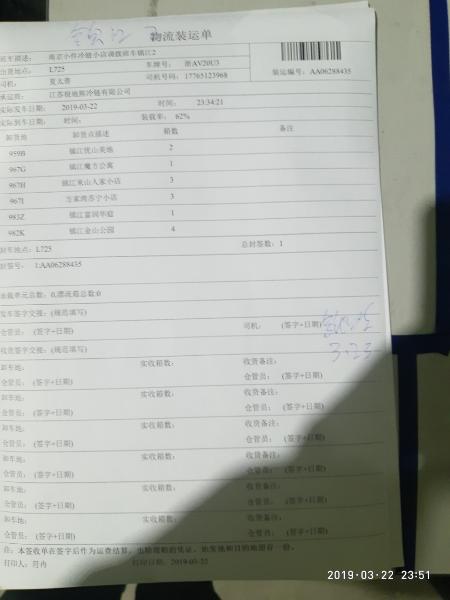 物流装运单
班车描述: 南京小件冷链小店调拨班车镇江2
出货地点: L725 车牌号: 浙AV20U3
司机: 夏太善 司机号码: 17765123968 装运编号: AA06288435
承运商: 江苏极地熊冷链有限公司
实际发车日期: 2019-03-22 时间: 23:34:21
实际到车日期: 时间: 装载率: 62%
卸货地 卸货点描述 箱数 备注
959B 镇江优山美地 2
967G 镇江魔方公寓 1
967H 镇江东山人家小店 3
967I 万家湾苏宁小店 3
983Z 镇江富润华庭 1
982K 镇江金山公园 4
封车地点: L725 总封签数: 1
封签号: 1:AA06288435
承载单元总数: 0,漂流箱总数:0
发车签字交接: (规范填写)
仓管员: (签字+日期) 司机: (签字+日期)
3.23
收货签字交接: (规范填写)
卸车地: 实收箱数: 收货备注:
仓管员: (签字+日期) 仓管员: (签字+日期)
卸车地: 实收箱数: 收货备注:
仓管员: (签字+日期) 仓管员: (签字+日期)
卸车地: 实收箱数: 收货备注:
仓管员: (签字+日期) 仓管员: (签字+日期)
卸车地: 实收箱数: 收货备注:
仓管员: (签字+日期) 仓管员: (签字+日期)
卸车地: 实收箱数: 收货备注:
仓管员: (签字+日期) 仓管员: (签字+日期)
卸车地: 实收箱数: 收货备注:
仓管员: (签字+日期) 仓管员: (签字+日期)
注: 本签收单在签字后作为运费结算、出险理赔的凭证，始发地和目的地留存一份。
打印人: 符冉 打印日期: 2019-03-22
2019-03-22 23:51